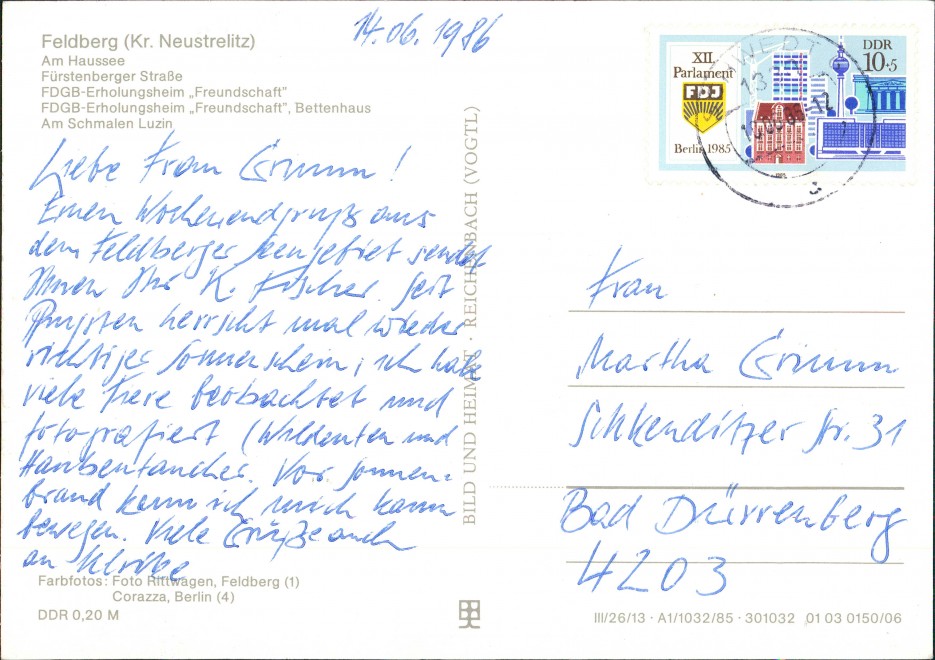 14.06.1986
Feldberg (Kr. Neustrelitz)
Am Haussee
Fürstenberger Straße
FDGB-Erholungsheim „Freundschaft"
FDGB-Erholungsheim „Freundschaft", Bettenhaus
Am Schmalen Luzin
Liebe Frau Grimm!
Einen Wochenendgruß aus
dem Feldberger Seengebiet sendet
Ihnen Ihr K. Fischer. Seit
Pfingsten herrscht mal wieder
richtiger Sonnenschein, ich habe
viele Tiere beobachtet und
fotografiert (Wildenten und
Haubentaucher. Vor Sonnen-
brand kann ich mich kaum
bewegen. Viele Grüße auch
an Ulrike
Farbfotos: Foto Rittwagen, Feldberg (1)
Corazza, Berlin (4)
DDR 0,20 M
BILD UND HEIMAT · REICHENBACH (VOGTL)
XII.
Parlament
FDJ
Berlin 1985
DDR
10+5
Frau
Martha Grimm
Schkeuditzer Str. 31
Bad Dürrenberg
4203
III/26/13 · A1/1032/85 · 301032 01 03 0150/06